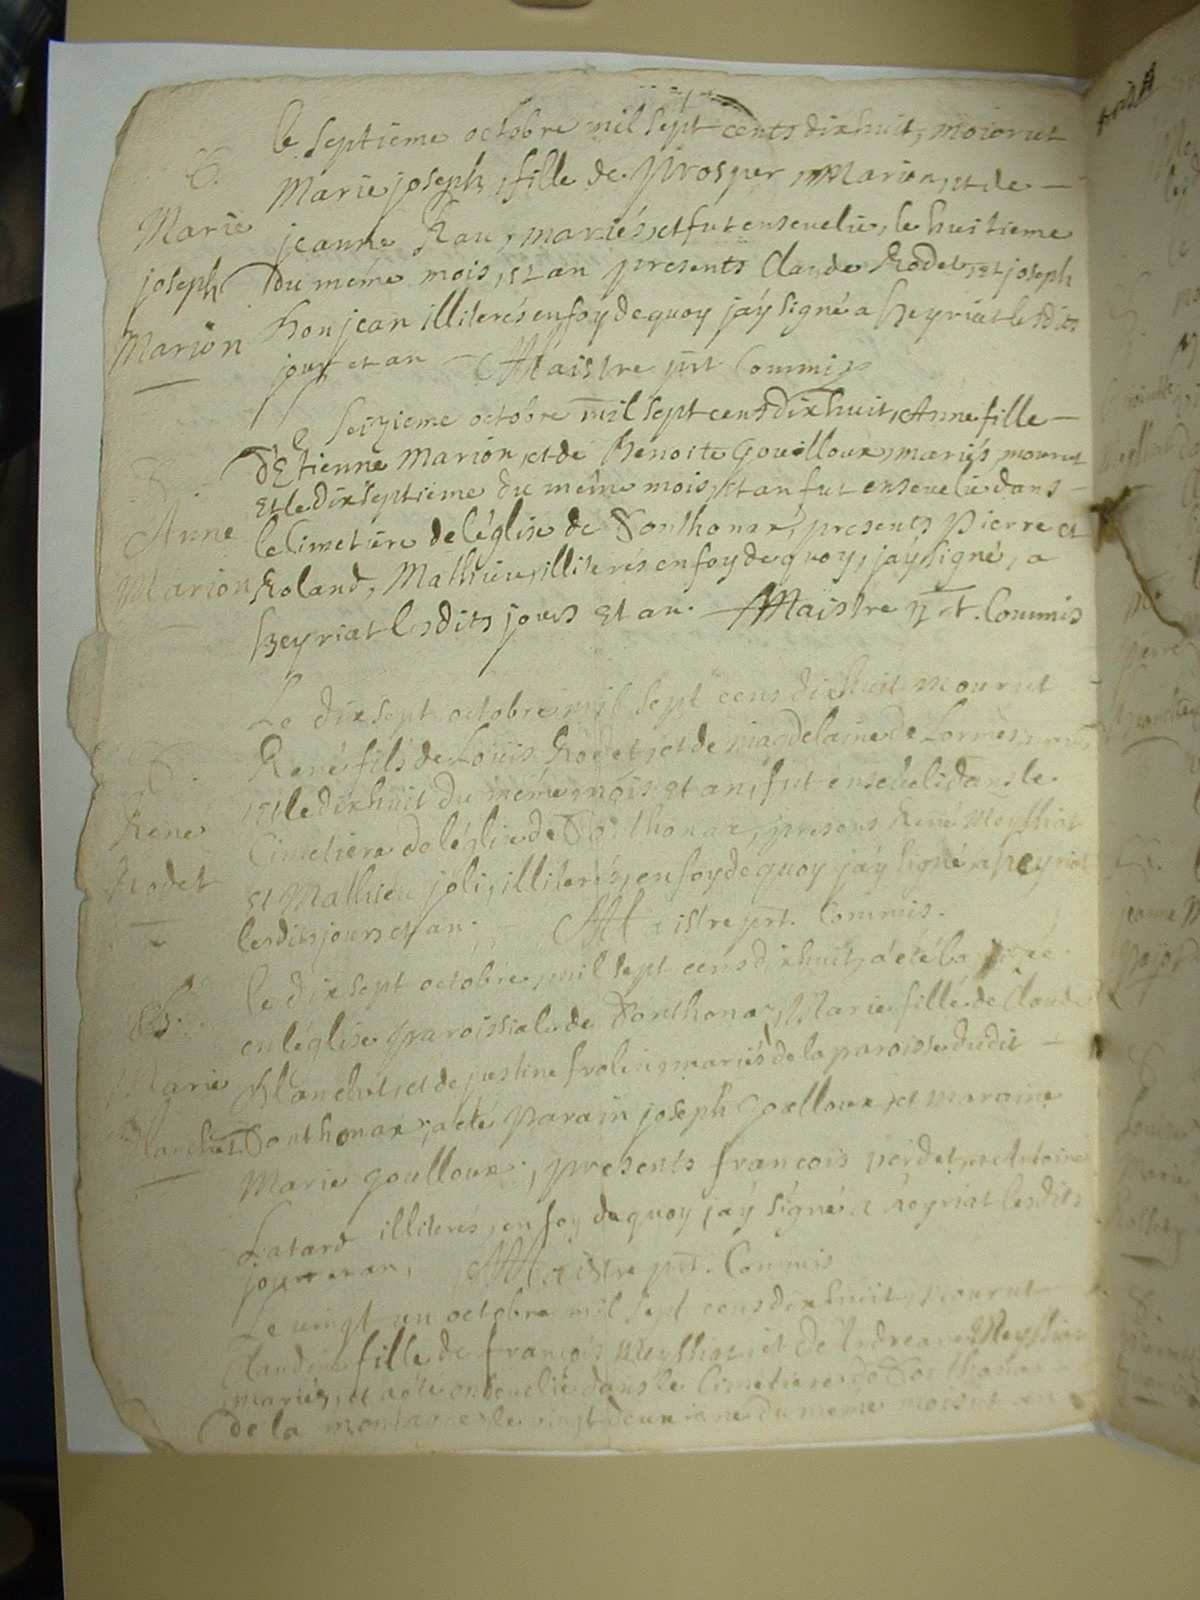 le septieme octobre mil sept cents dixhuit, mourut
S.
Marie joseph, fille de prosper Marion, et de —
Marie
jeanne Rau, mariés, et fut ensevelie, le huitieme
joseph
du méme mois, et an presents Claude Rodet, et joseph
Marion
bon jean illiterés en foy de quoy jaÿ signé a heyriat lesdits
jour et an Maistre prt Commis
Le seizieme octobre mil sept cens dixhuit, Anne fille —
d'Etienne Marion, et de Benoite Gouilloux, mariés, mourut
S.
et le dix septieme du méme mois, et an fut ensevelie dans —
Anne
le Cimetiere de léglise de Sonthonax, presents pierre et
Marion
Roland, Mathieu, illiterés en foy de quoy, jaÿ signé, a
heyriat lesdits jours et an. Maistre prt. Commis
Le dix sept octobre mil sept cens dixhuit mourut
René fils de Loüis Rodet, et de magdelaine de Lormes,
S.
et le dixhuit du méme mois et an, fut enseveli dans le
Rene
Cimetiere de léglise de Sonthonax, presens René Meyssiat
Rodet
et Mathieu joli, illiterés, en foy de quoy jaÿ signé, a heyriat
lesdits jours et an. Maistre prt. Commis.
le dix sept octobre, mil sept cens dixhuit, a été baptisée
B.
en léglise paroissiale de Sonthonax, Marie fille de Claude
Marie
Blanchet, et de justine frolin mariés de la paroisse dudit —
Blanchet
Sonthonax, a été parain joseph Goulloux, et maraine
Marie Goulloux, presents francois perdet, et Antoine
Latard illiterés, en foy de quoy jaÿ signé a heyriat lesdits
jour et an, Maistre prt. Commis
Le vingt un octobre mil sept cens dixhuit, mourut
Claudine fille de francois Meyssiat, et de Andreane Meyssiat
mariés, et a été ensevelie dans le Cimetiere de Sonthonax
de la montagne le vingt deuxieme du meme mois et an